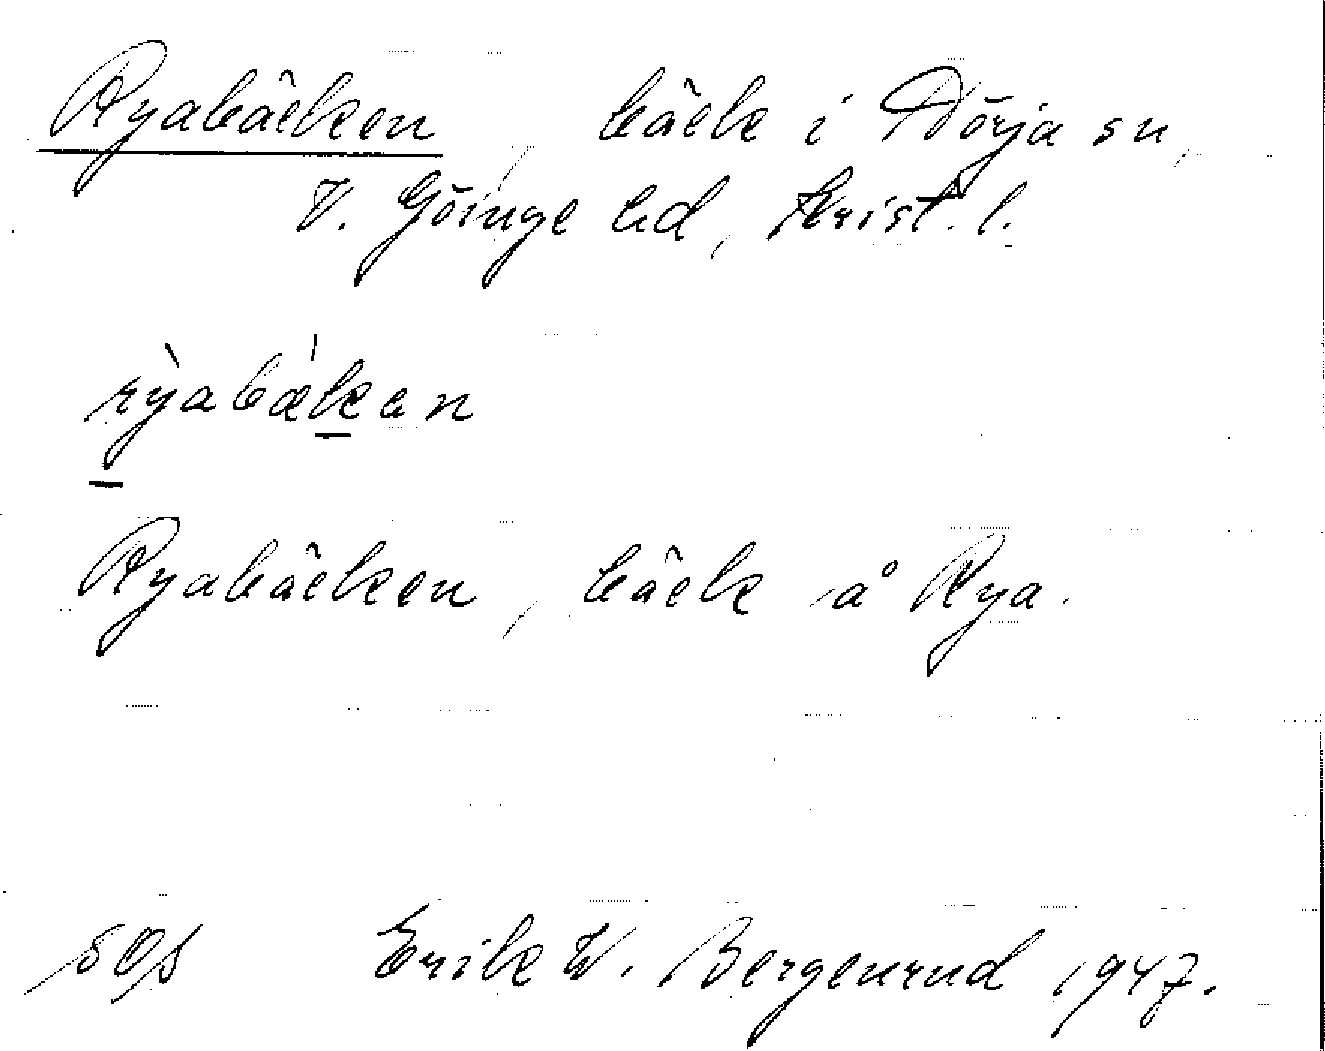 Ryabäcken, bäck i Nörja sn,
V. Göinge hd, Krist. l.
rỳabæ̀kan
Ryabäcken, bäck å Rya.
Erik W. Bergenrud 1947.